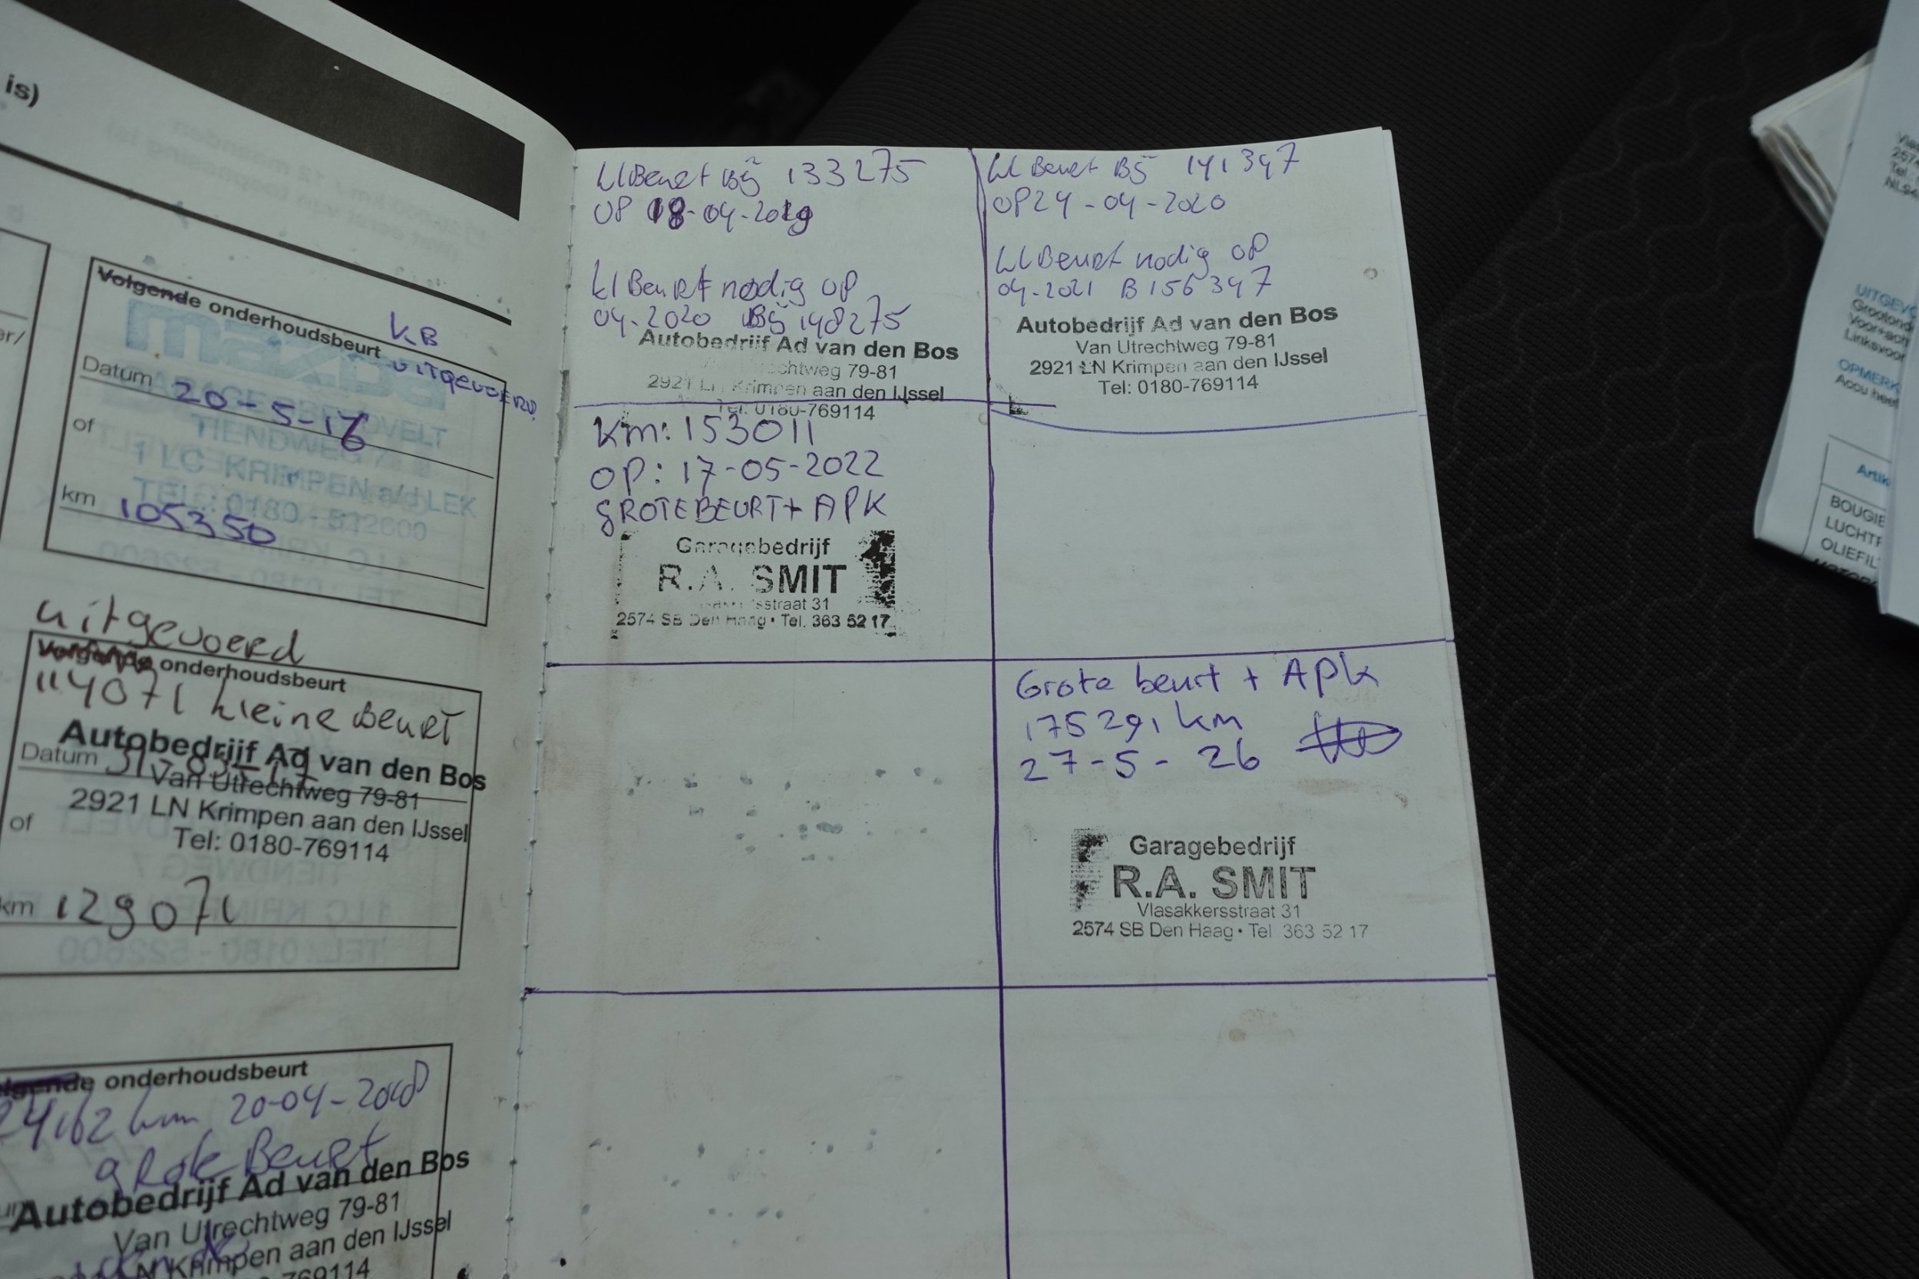 is)
Volgende onderhoudsbeurt
KB
uitgevoerd
Datum 20-5-16
of
km 105350
uitgevoerd
onderhoudsbeurt
114071 kleine Beurt
Autobedrijf Ad van den Bos
Datum
Van Utrechtweg 79-81
2921 LN Krimpen aan den IJssel
of
Tel: 0180-769114
km 129071
onderhoudsbeurt
km 20-04-2018
grote Beurt
Autobedrijf Ad van den Bos
Van Utrechtweg 79-81
Krimpen aan den IJssel
769114
kl Beurt Bij 133275
op 18-04-2019
kl Beurt nodig op
04-2020 Bij 148275
Autobedrijf Ad van den Bos
79-81
2921 Krimpen aan den IJssel
Tel: 0180-769114
kl Beurt Bij 141347
op 24-04-2020
kl Beurt nodig op
04-2021 B 156347
Autobedrijf Ad van den Bos
Van Utrechtweg 79-81
2921 LN Krimpen aan den IJssel
Tel: 0180-769114
km: 153011
op: 17-05-2022
GROTE BEURT + APK
Garagebedrijf
R.A. SMIT
31
2574 SB Den Haag • Tel. 363 52 17
Grote beurt + Apk
175291 km
27-5-26
Garagebedrijf
R.A. SMIT
Vlasakkersstraat 31
2574 SB Den Haag • Tel 363 52 17
OPMERK
Accu heef
Artik
BOUGIE
LUCHTF
OLIEFIL